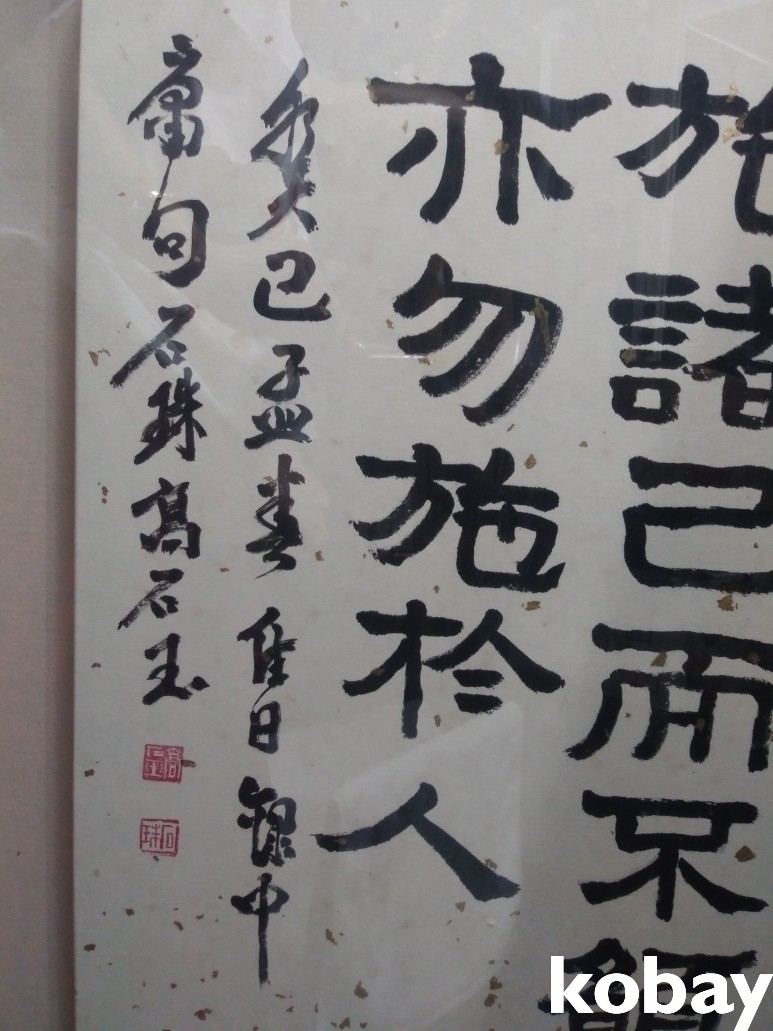 施諸己而不願
亦勿施於人
癸巳孟春佳日錄中
庸句石珠高石玉
高石玉
石珠
kobay